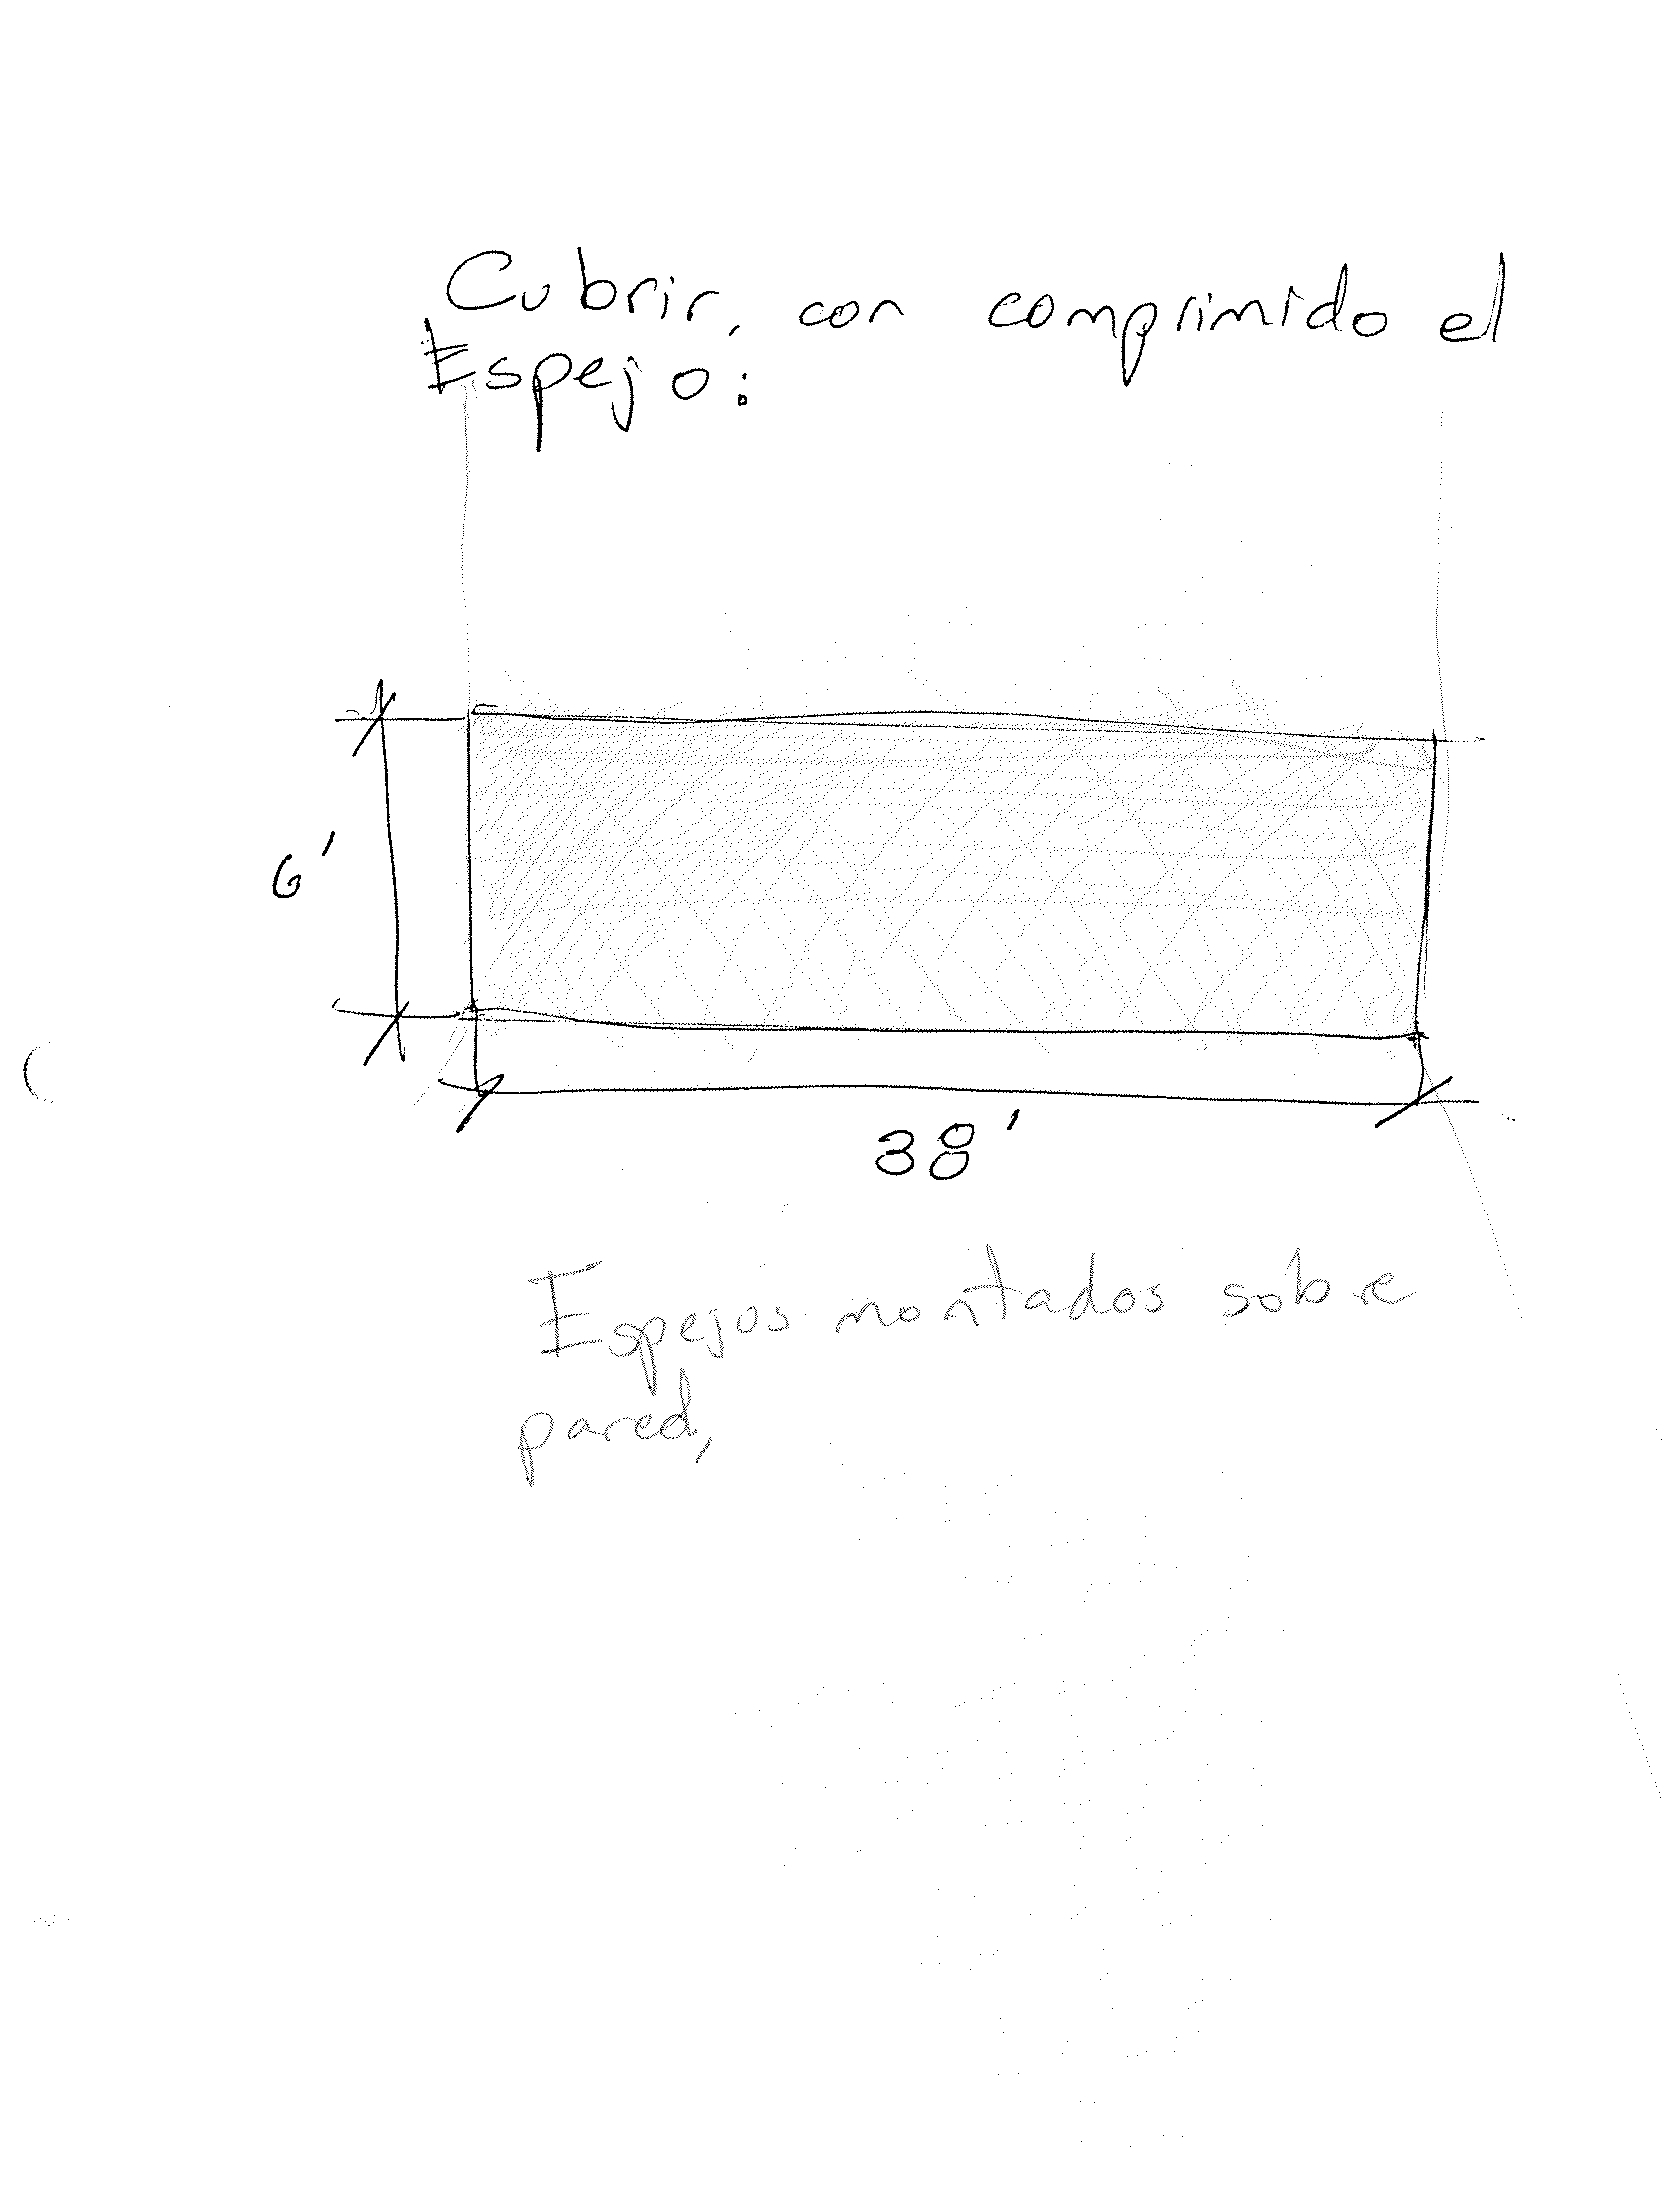 Cubrir, con comprimido el
Espejo:
6'
38'
Espejos montados sobre
pared,